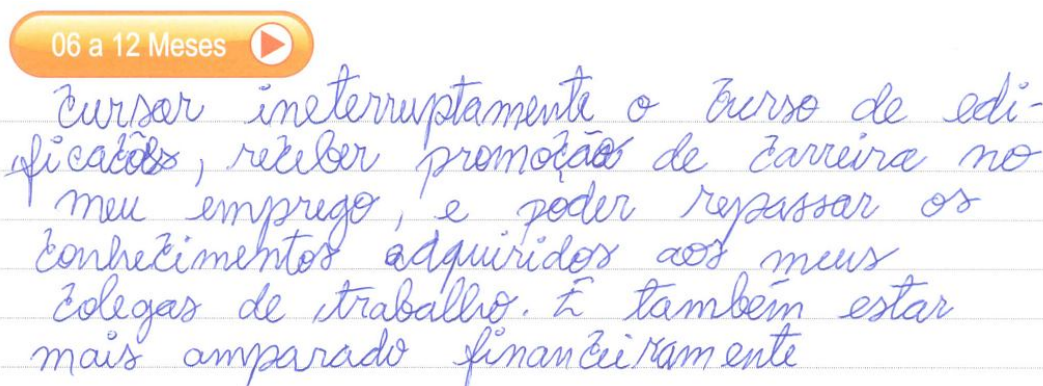 06 a 12 Meses
Cursar ineterruptamente o curso de edi-
ficações, receber promoção de carreira no
meu emprego, e poder repassar os
conhecimentos adquiridos aos meus
colegas de trabalho. E também estar
mais amparado financeiramente